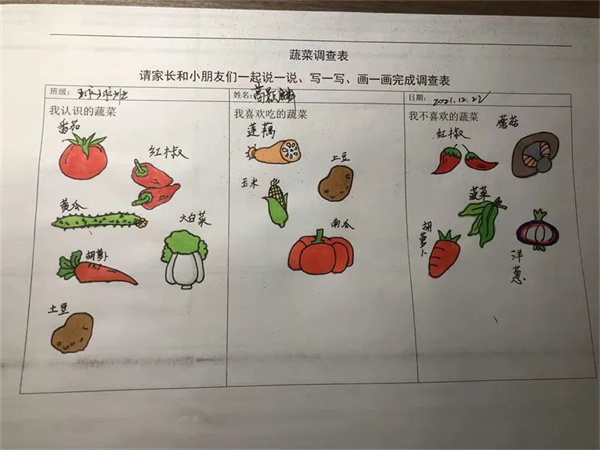 蔬菜调查表
请家长和小朋友们一起说一说、写一写、画一画完成调查表
班级：
姓名：
日期：2021.12.22
我认识的蔬菜
番茄
红椒
黄瓜
大白菜
胡萝卜
土豆
我喜欢吃的蔬菜
莲藕
土豆
玉米
南瓜
我不喜欢的蔬菜
红椒
蘑菇
菠菜
胡萝卜
洋葱